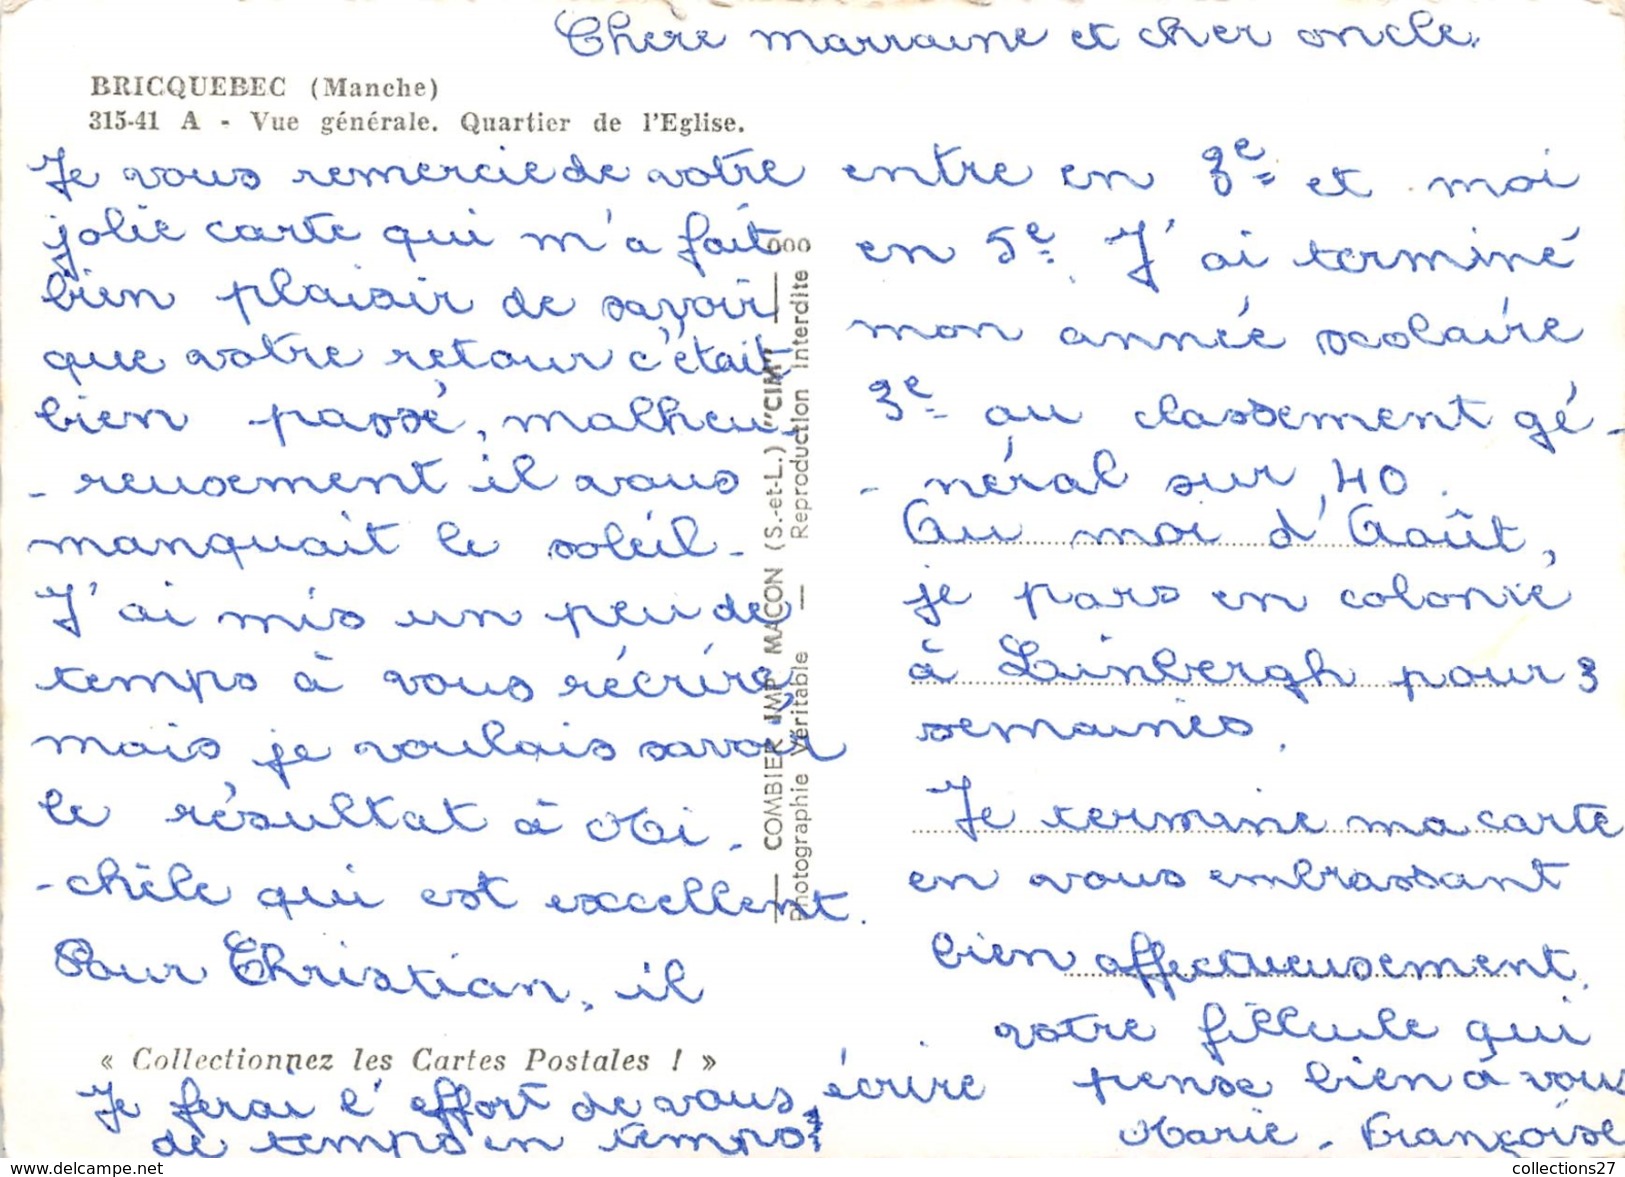 Chere marraine et cher oncle.
BRICQUEBEC (Manche)
315-41 A - Vue générale. Quartier de l'Eglise.
Je vous remercie de votre
jolie carte qui m'a fait
bien plaisir de savoir
que votre retour c'était
bien passé, malheu-
-reusement il vous
manquait le soleil-
J'ai mis un peu de
temps à vous récrire,
mais je voulais savoir
le résultat à Mi-
-chèle qui est excellent.
Pour Christian, il
entre en 3e et moi
en 5e. J'ai terminé
mon année scolaire
3e au classement gé-
-néral sur 40.
Au moi d'Août,
je pars en colonie
à Lainbergh pour 3
semaines.
Je termine ma carte
en vous embrassant
bien affectueusement.
votre fillule qui
pense bien à vous
Marie-Françoise
« Collectionnez les Cartes Postales ! »
Je ferai l'effort de vous écrire
de temps en temps!
— COMBIER IMP MACON (S.-et-L.) "CIM" —
Photographie Véritable — Reproduction Interdite
collections27